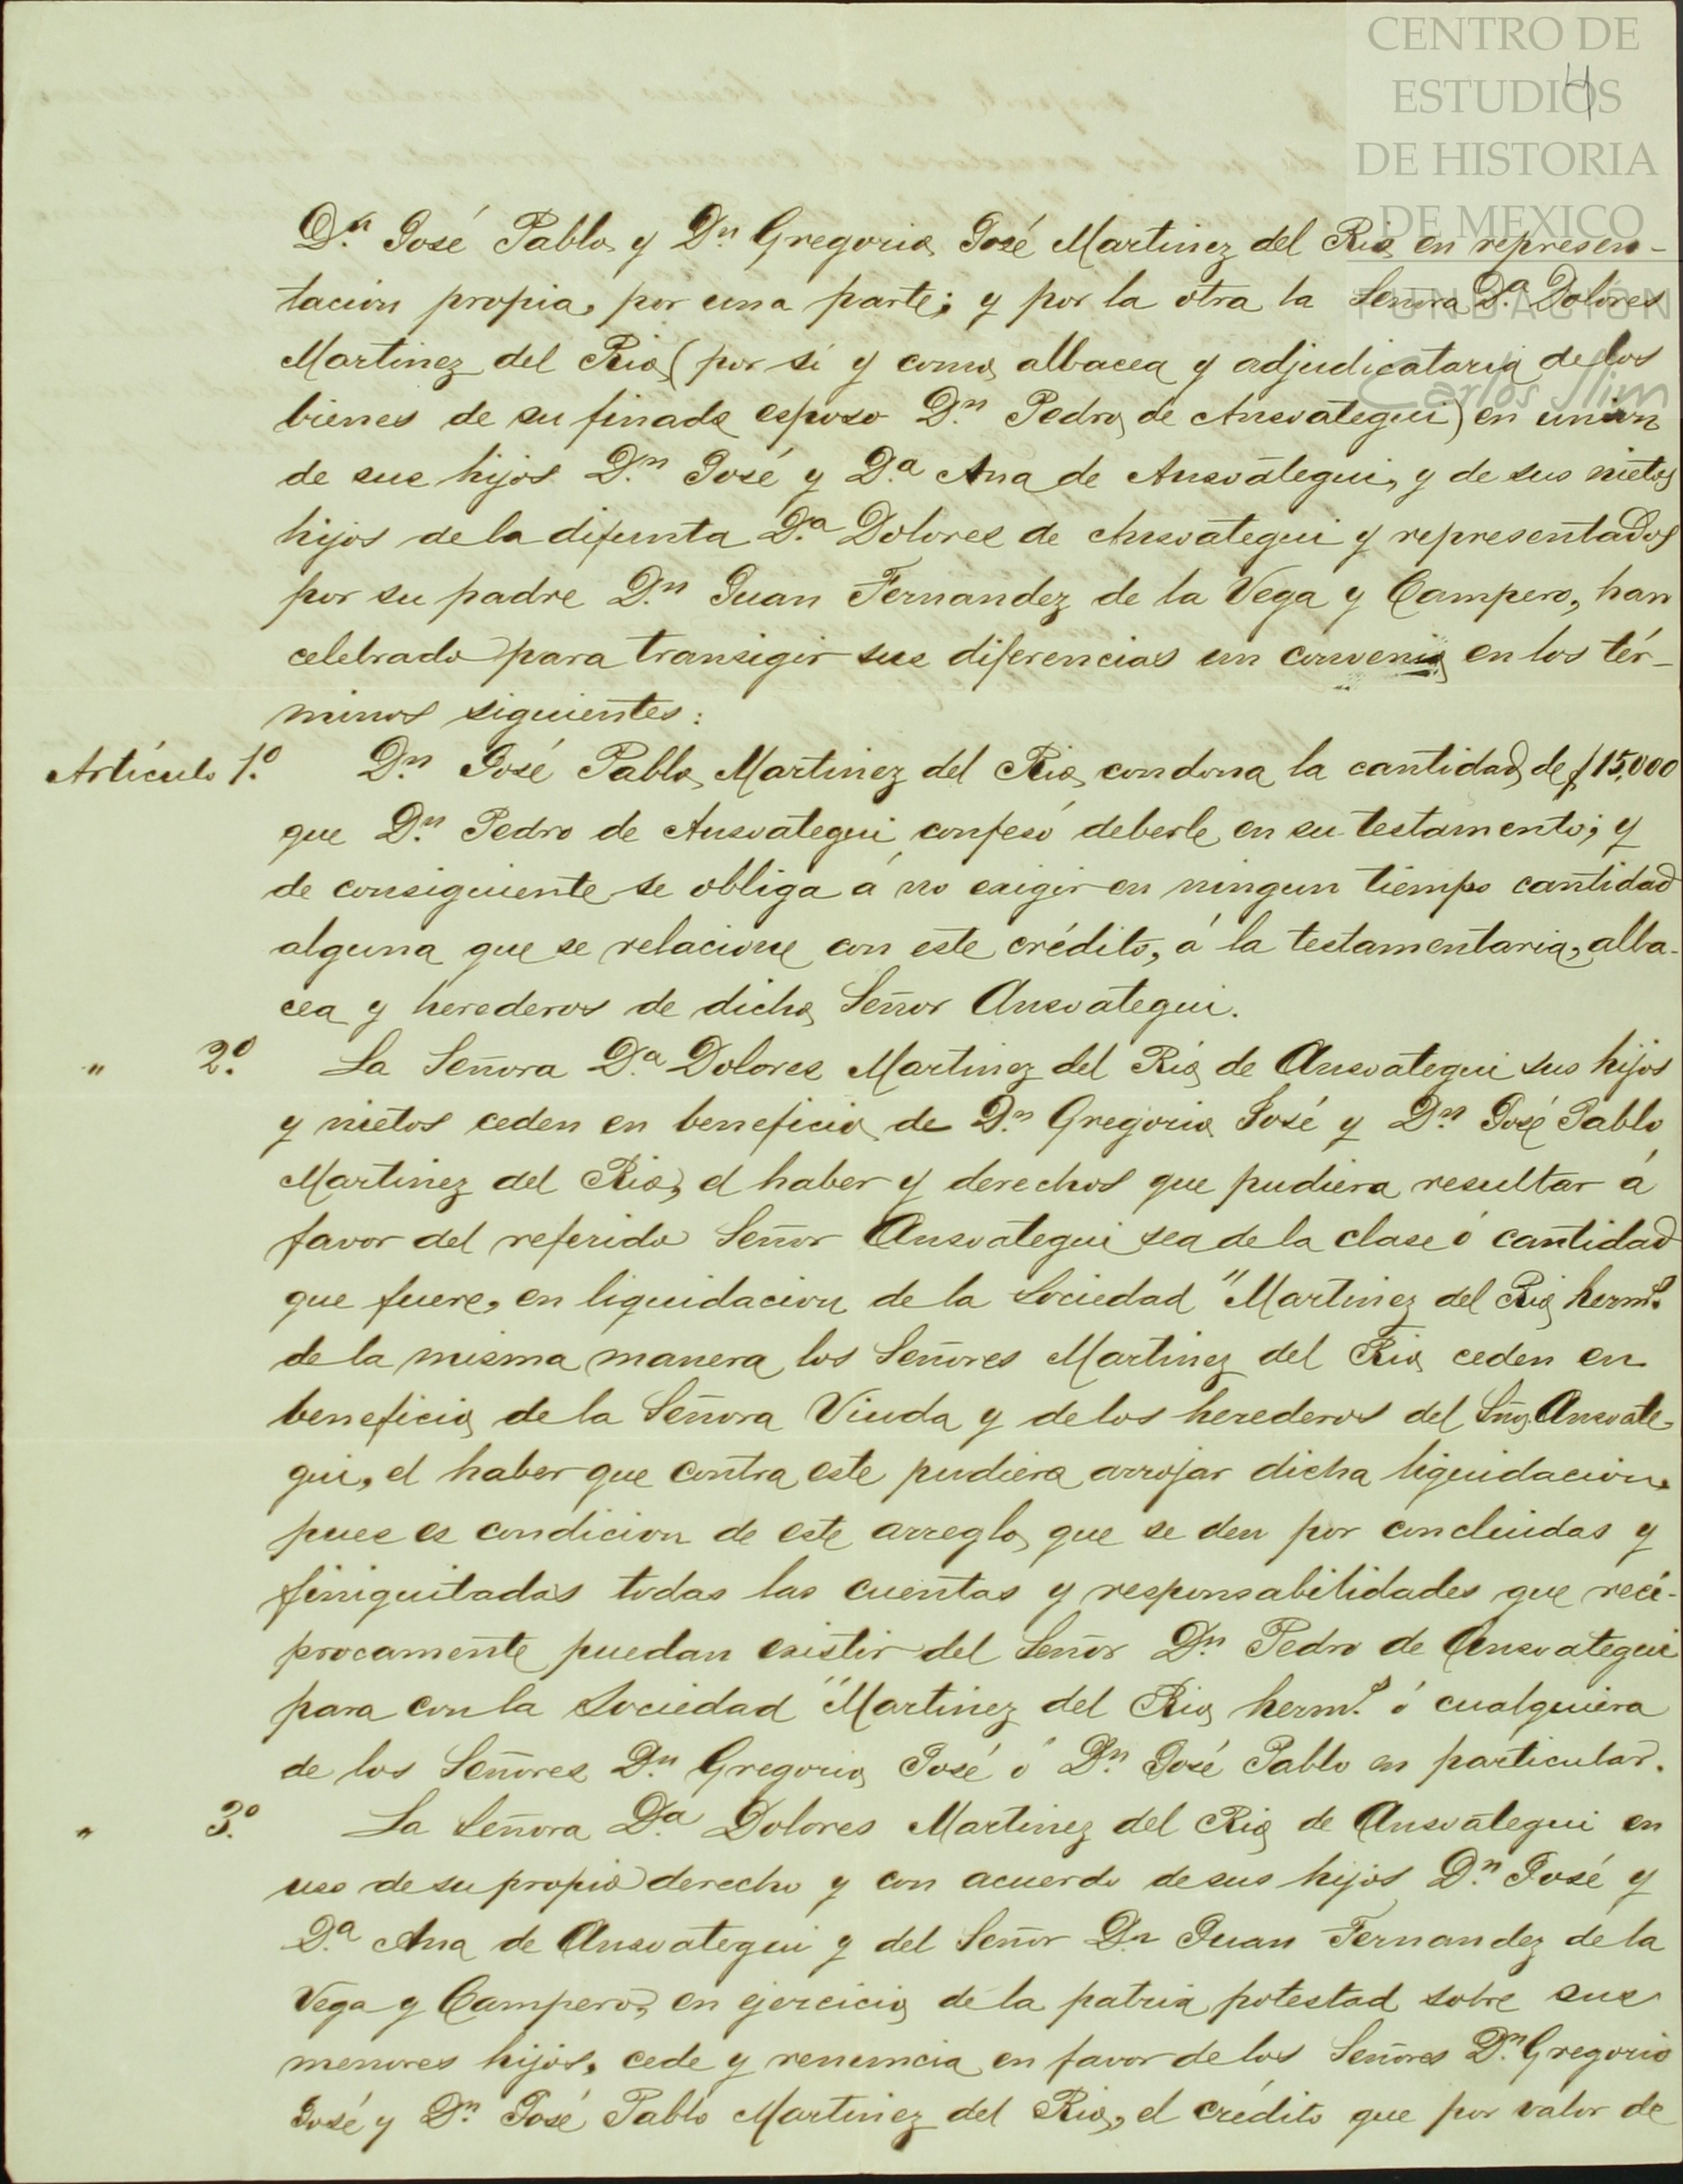 CENTRO DE
ESTUDIOS
DE HISTORIA
DE MEXICO
FUNDACION
Carlos Slim
4
D.n José Pablo y D.n Gregorio José Martinez del Rio en represen-
tacion propia, por una parte; y por la otra la Señora D.a Dolores
Martinez del Rio (por sí y como albacea y adjudicataria de los
bienes de su finado esposo D.n Pedro de Ansoategui) en union
de sus hijos D.n José y D.a Ana de Ansoategui, y de sus nietos
hijos de la difunta D.a Dolores de Ansoategui y representados
por su padre D.n Juan Fernandez de la Vega y Campero, han
celebrado para transigir sus diferencias un convenio en los tér-
minos siguientes:
Artículo 1.o D.n José Pablo Martinez del Rio condona la cantidad de $15,000
que D.n Pedro de Ansoategui confesó deberle en su testamento; y
de consiguiente se obliga á no exigir en ningun tiempo cantidad
alguna que se relacione con este crédito, á la testamentaria, alba-
cea y herederos de dicho Señor Ansoategui.
" 2.o La Señora D.a Dolores Martinez del Rio de Ansoategui sus hijos
y nietos ceden en beneficio de D.n Gregorio José y D.n José Pablo
Martinez del Rio, el haber y derechos que pudiera resultar á
favor del referido Señor Ansoategui sea de la clase ó cantidad
que fuere, en liquidacion de la Sociedad "Martinez del Rio herm.s
de la misma manera los Señores Martinez del Rio ceden en
beneficio de la Señora Viuda y de los herederos del Sñr. Ansoate-
gui, el haber que contra este pudiera arrojar dicha liquidacion,
pues es condicion de este arreglo que se den por concluidas y
finiquitadas todas las cuentas y responsabilidades que recí-
procamente puedan existir del Señor D.n Pedro de Ansoategui
para con la Sociedad "Martinez del Rio herm.s ó cualquiera
de los Señores D.n Gregorio José ó D.n José Pablo en particular.
" 3.o La Señora D.a Dolores Martinez del Rio de Ansoategui en
uso de su propio derecho y con acuerdo de sus hijos D.n José y
D.a Ana de Ansoategui y del Señor D.n Juan Fernandez de la
Vega y Campero, en ejercicio de la patria potestad sobre sus
menores hijos, cede y renuncia en favor de los Señores D.n Gregorio
José y D.n José Pablo Martinez del Rio, el crédito que por valor de